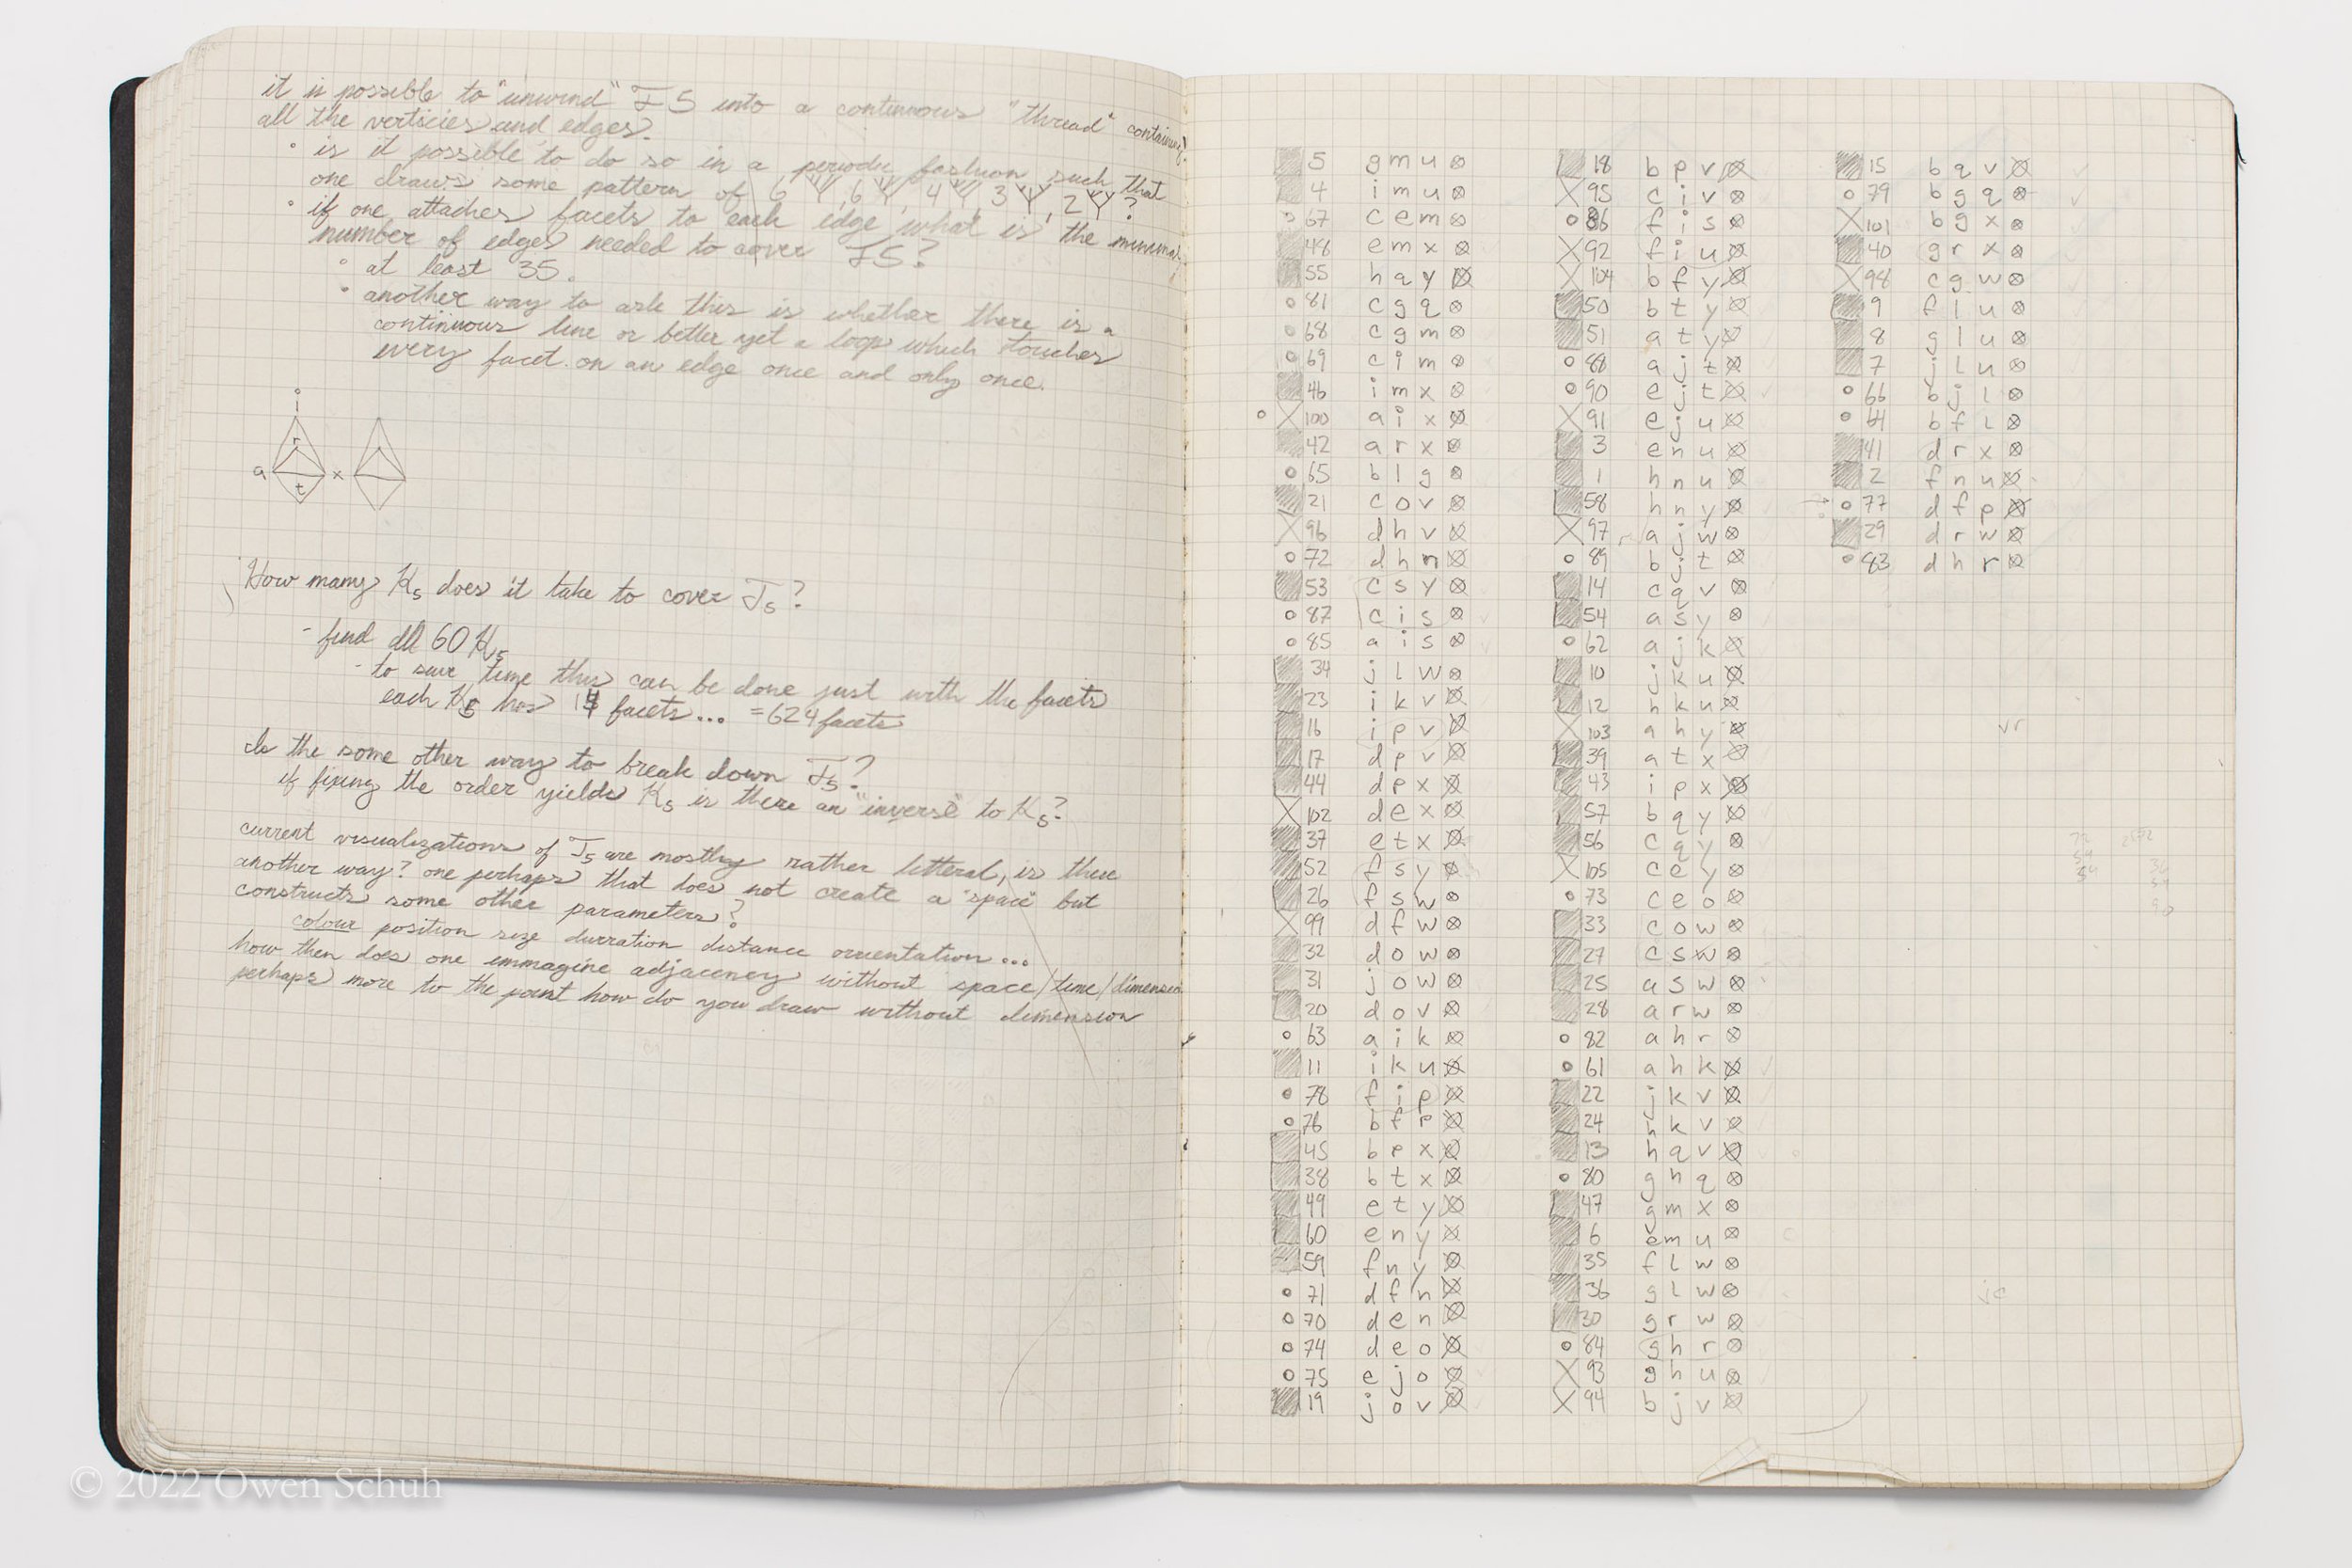 it is possible to "unwind" T5 into a continuous "thread" containing
all the verticies and edges.
° is it possible to do so in a periodic fashion such that
one draws some pattern of 6 , 6 , 4 , 3 , 2 ?
° if one attaches facets to each edge what is the minimal
number of edges needed to cover T5?
° at least 35.
° another way to ask this is whether there is a
continuous line or better yet a loop which touches
every facet on an edge once and only once.
i
r
a x
t
How many K5 does it take to cover T5?
- find all 60 K5
- to save time this can be done just with the facets
each K5 has 14 facets... = 624 facets
Is the some other way to break down T5?
if fixing the order yields K5 is there an "inverse" to K5?
current visualizations of T5 are mostly rather litteral, is there
another way? one perhaps that does not create a "space" but
constructs some other parameters?
colour position size durration distance orientation...
how then does one immagine adjacency without space/time/dimension
perhaps more to the point how do you draw without dimension
5 g m u
4 i m u
67 c e m
48 e m x
55 h q y
81 c g q
68 c g m
69 c i m
46 i m x
100 a i x
42 a r x
65 b l g
21 c o v
96 d h v
72 d h n
53 c s y
87 c i s
85 a i s
34 j l w
23 i k v
16 i p v
17 d p v
44 d p x
102 d e x
37 e t x
52 f s y
26 f s w
99 d f w
32 d o w
31 j o w
20 d o v
63 a i k
11 i k u
78 f i p
76 b f p
45 b p x
38 b t x
49 e t y
60 e n y
59 f n y
71 d f n
70 d e n
74 d e o
75 e j o
19 j o v
18 b p v
95 c i v
86 f i s
92 f i u
104 b f y
50 b t y
51 a t y
88 a j t
90 e j t
91 e j u
3 e n u
1 h n u
58 h n y
97 a j w
89 b j t
14 c q v
54 a s y
62 a j k
10 j k u
12 h k u
103 a h y
39 a t x
43 i p x
57 b q y
56 c q y
105 c e y
73 c e o
33 c o w
27 c s w
25 a s w
28 a r w
82 a h r
61 a h k
22 j k v
24 h k v
13 h q v
80 g h q
47 g m x
6 e m u
35 f l w
36 g l w
30 g r w
84 g h r
93 g h u
94 b j v
15 b q v
79 b g q
101 b g x
40 g r x
98 c g w
9 f l u
8 g l u
7 j l u
66 b j l
64 b f l
41 d r x
2 f n u
77 d f p
29 d r w
83 d h r
vr
jc
© 2022 Owen Schuh